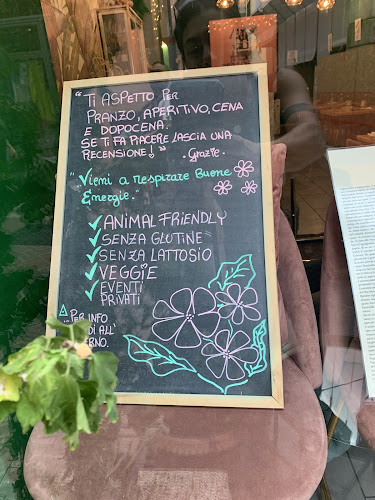 "Ti ASPETTO PER
PRANZO, APERITIVO, CENA
E DOPOCENA.
SE TI FA PIACERE LASCIA UNA
RECENSIONE!" .Grazie.
"Vieni a respirare Buone
Energie."
✓ ANIMAL FRIENDLY
✓ SENZA GLUTINE
✓ SENZA LATTOSIO
✓ VEGGIE
✓ EVENTI
PRIVATI
PER INFO
DI ALL'
RNO.